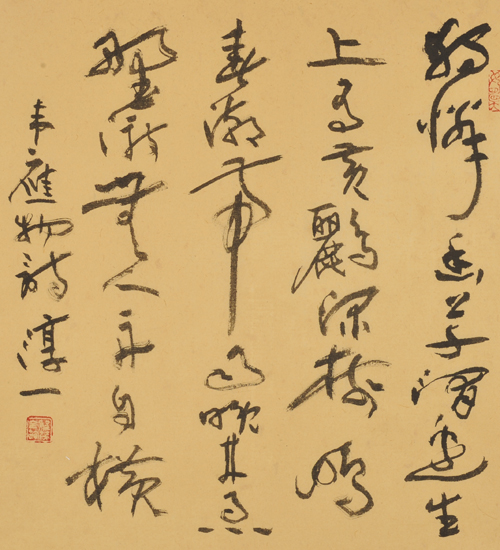 獨憐幽草澗邊生
上有黃鸝深樹鳴
春潮帶雨晚來急
野渡無人舟自橫
韋應物詩 淳一